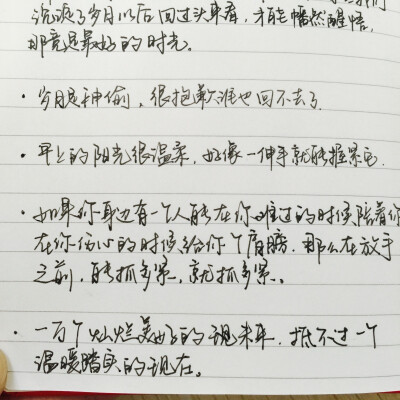 沉淀了岁月以后回过头来看,才能幡然醒悟,
那竟是最好的时光。
· 岁月是神偷,很抱歉谁也回不去了.
· 早上的阳光很温柔,好像一伸手就能握紧它.
· 如果你身边有一个人能在你难过的时候陪着你
在你伤心的时候给你个肩膀.那么在放手
之前,能抓多紧,就抓多紧。
· 一万个灿烂美好的现未来.抵不过一个
温暖踏实的现在。